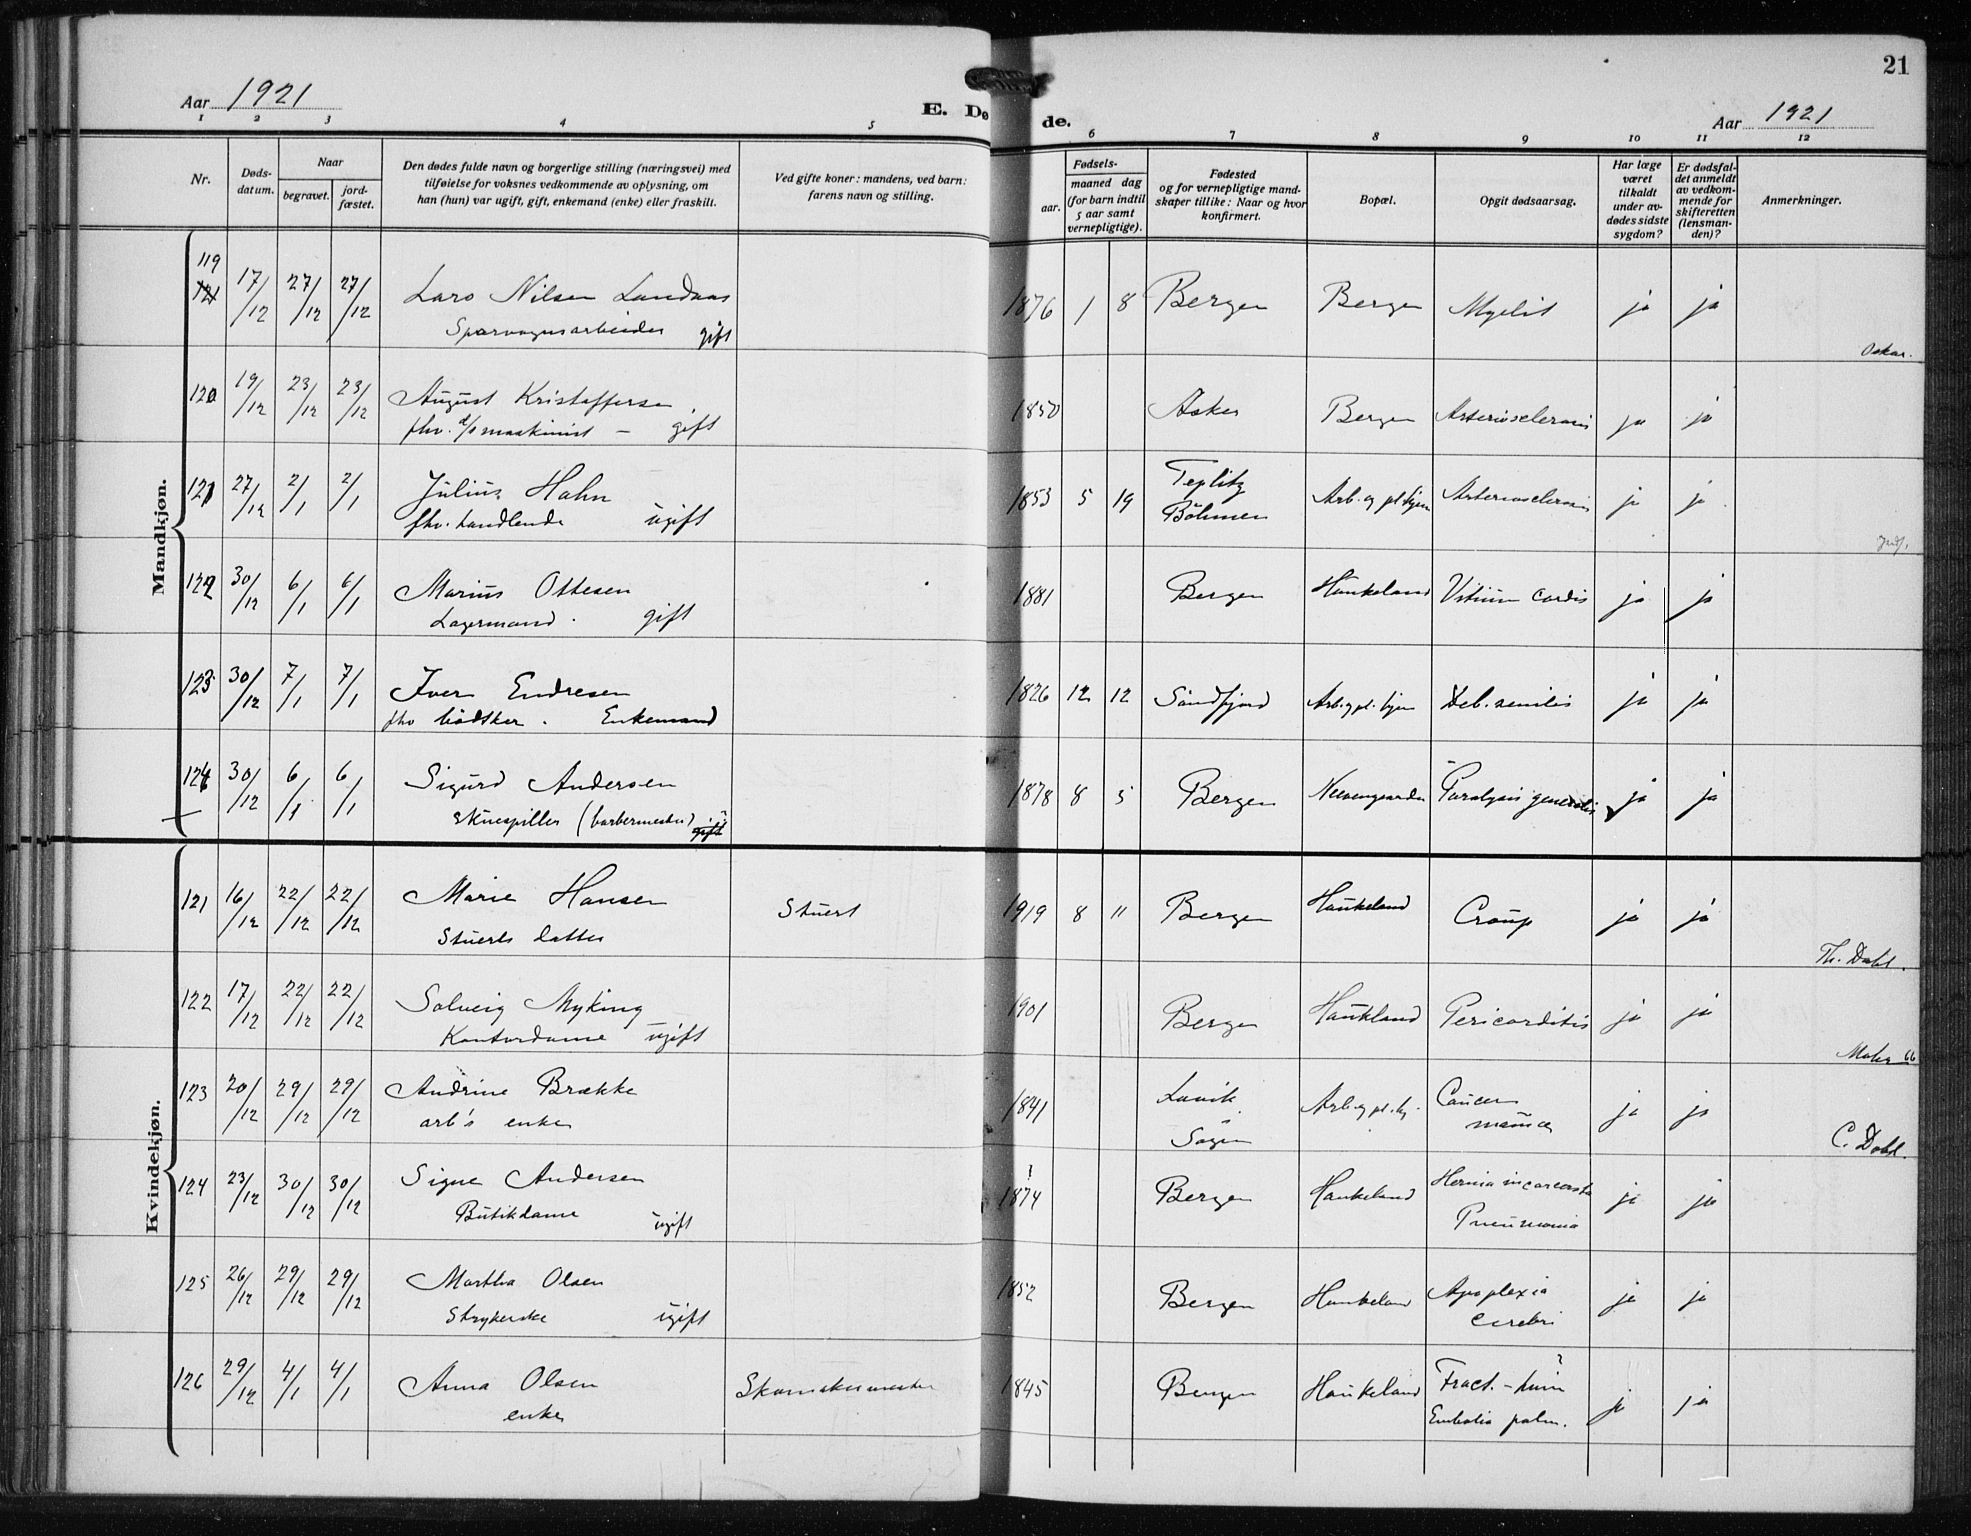 21
Aar 1921
E. Dø de.
Aar 1921
1 2 3 4 5 6 7 8 9 10 11 12
Nr.
Døds-
datum.
Naar
begravet.
jord-
fæstet.
Den dødes fulde navn og borgerlige stilling (næringsvei) med
tilføielse for voksnes vedkommende av oplysning, om
han (hun) var ugift, gift, enkemand (enke) eller fraskilt.
Ved gifte koner: mandens, ved barn:
farens navn og stilling.
Fødsels-
aar.
maaned dag
(for barn indtil
5 aar samt
vernepligtige).
Fødested
og for vernepligtige mand-
skaper tillike: Naar og hvor
konfirmert.
Bopæl.
Opgit dødsaarsag.
Har læge
været
tilkaldt
under av-
dødes sidste
sygdom?
Er dødsfal-
det anmeldt
av vedkom-
mende for
skifteretten
(lensman-
den)?
Anmerkninger.
Mandkjøn.
119
121 17/12 27/12 27/12 Lars Nilsen Landaas 1876 1 8 Bergen Bergen Myelit ja ja
Sporvognsarbeider gift
Oskar.
120 19/12 23/12 23/12 August Kristoffersen 1850 Asker Bergen Arteriosclerosis ja ja
fhv. d/s maskinist – gift
121 27/12 2/1 2/1 Julius Hahn 1853 5 19 Teplitz Arb. og pl.hjem Arteriosclerosis ja ja
fhv. handlende ugift Böhmen
122 30/12 6/1 6/1 Marius Ottesen 1881 Bergen Haukeland Vitium cordis ja ja
Lagermand. gift
123 30/12 7/1 7/1 Iver Endresen 1826 12 12 Søndfjord Arb. og pl. hjem Deb. senilis ja ja
fhv bødker. Enkemand
124 30/12 6/1 6/1 Sigurd Andersen 1878 8 5 Bergen Neevengaarden Paralysis generalis ja ja
Skuespiller (barbermester) gift
Kvindekjøn.
121 16/12 22/12 22/12 Marie Hansen Stuert 1919 8 11 Bergen Haukeland Croup ja ja
Stuerts datter
Th. Dahl.
122 17/12 22/12 22/12 Solveig Myking 1901 Bergen Haukland Pericarditis ja ja
Kontordame ugift
Mohr 66
123 20/12 29/12 29/12 Andrine Brække 1841 Lavik Arb. og pl. hj. Cancer ja ja
arb's enke Sogn mamma
C. Dahl.
124 23/12 30/12 30/12 Signe Andersen 1874 Bergen Haukeland Hernia incarcerata ja ja
Butikdame ugift Pneumonia
125 26/12 29/12 29/12 Martha Olsen 1852 Bergen Haukeland Apoplexia ja ja
Strykerske ugift cerebri
126 29/12 4/1 4/1 Anna Olsen Skomakermester 1845 Bergen Haukeland Fract. – ja ja
enke Embolia pulm.